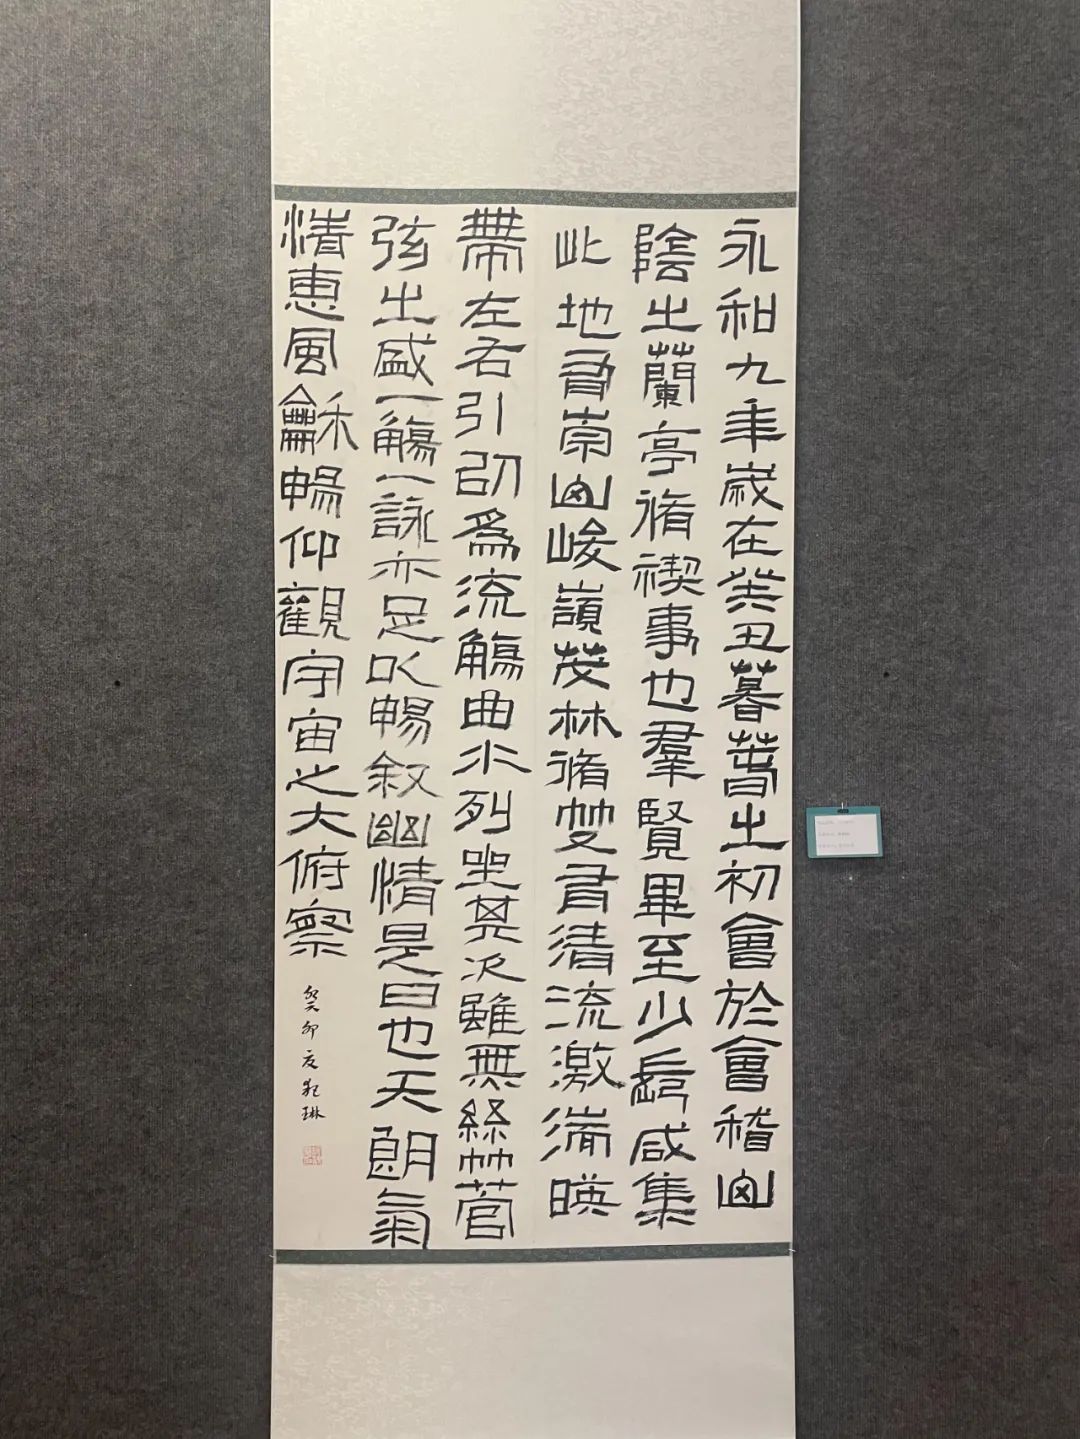 永和九年歲在癸丑暮春之初會於會稽山
陰之蘭亭脩禊事也羣賢畢至少長咸集
此地有崇山峻嶺茂林脩竹又有清流激湍暎
帶左右引以爲流觴曲水列坐其次雖無絲竹管
弦之盛一觴一詠亦足以暢叙幽情是日也天朗氣
清惠風龢暢仰觀宇宙之大俯察
癸卯夏 琳